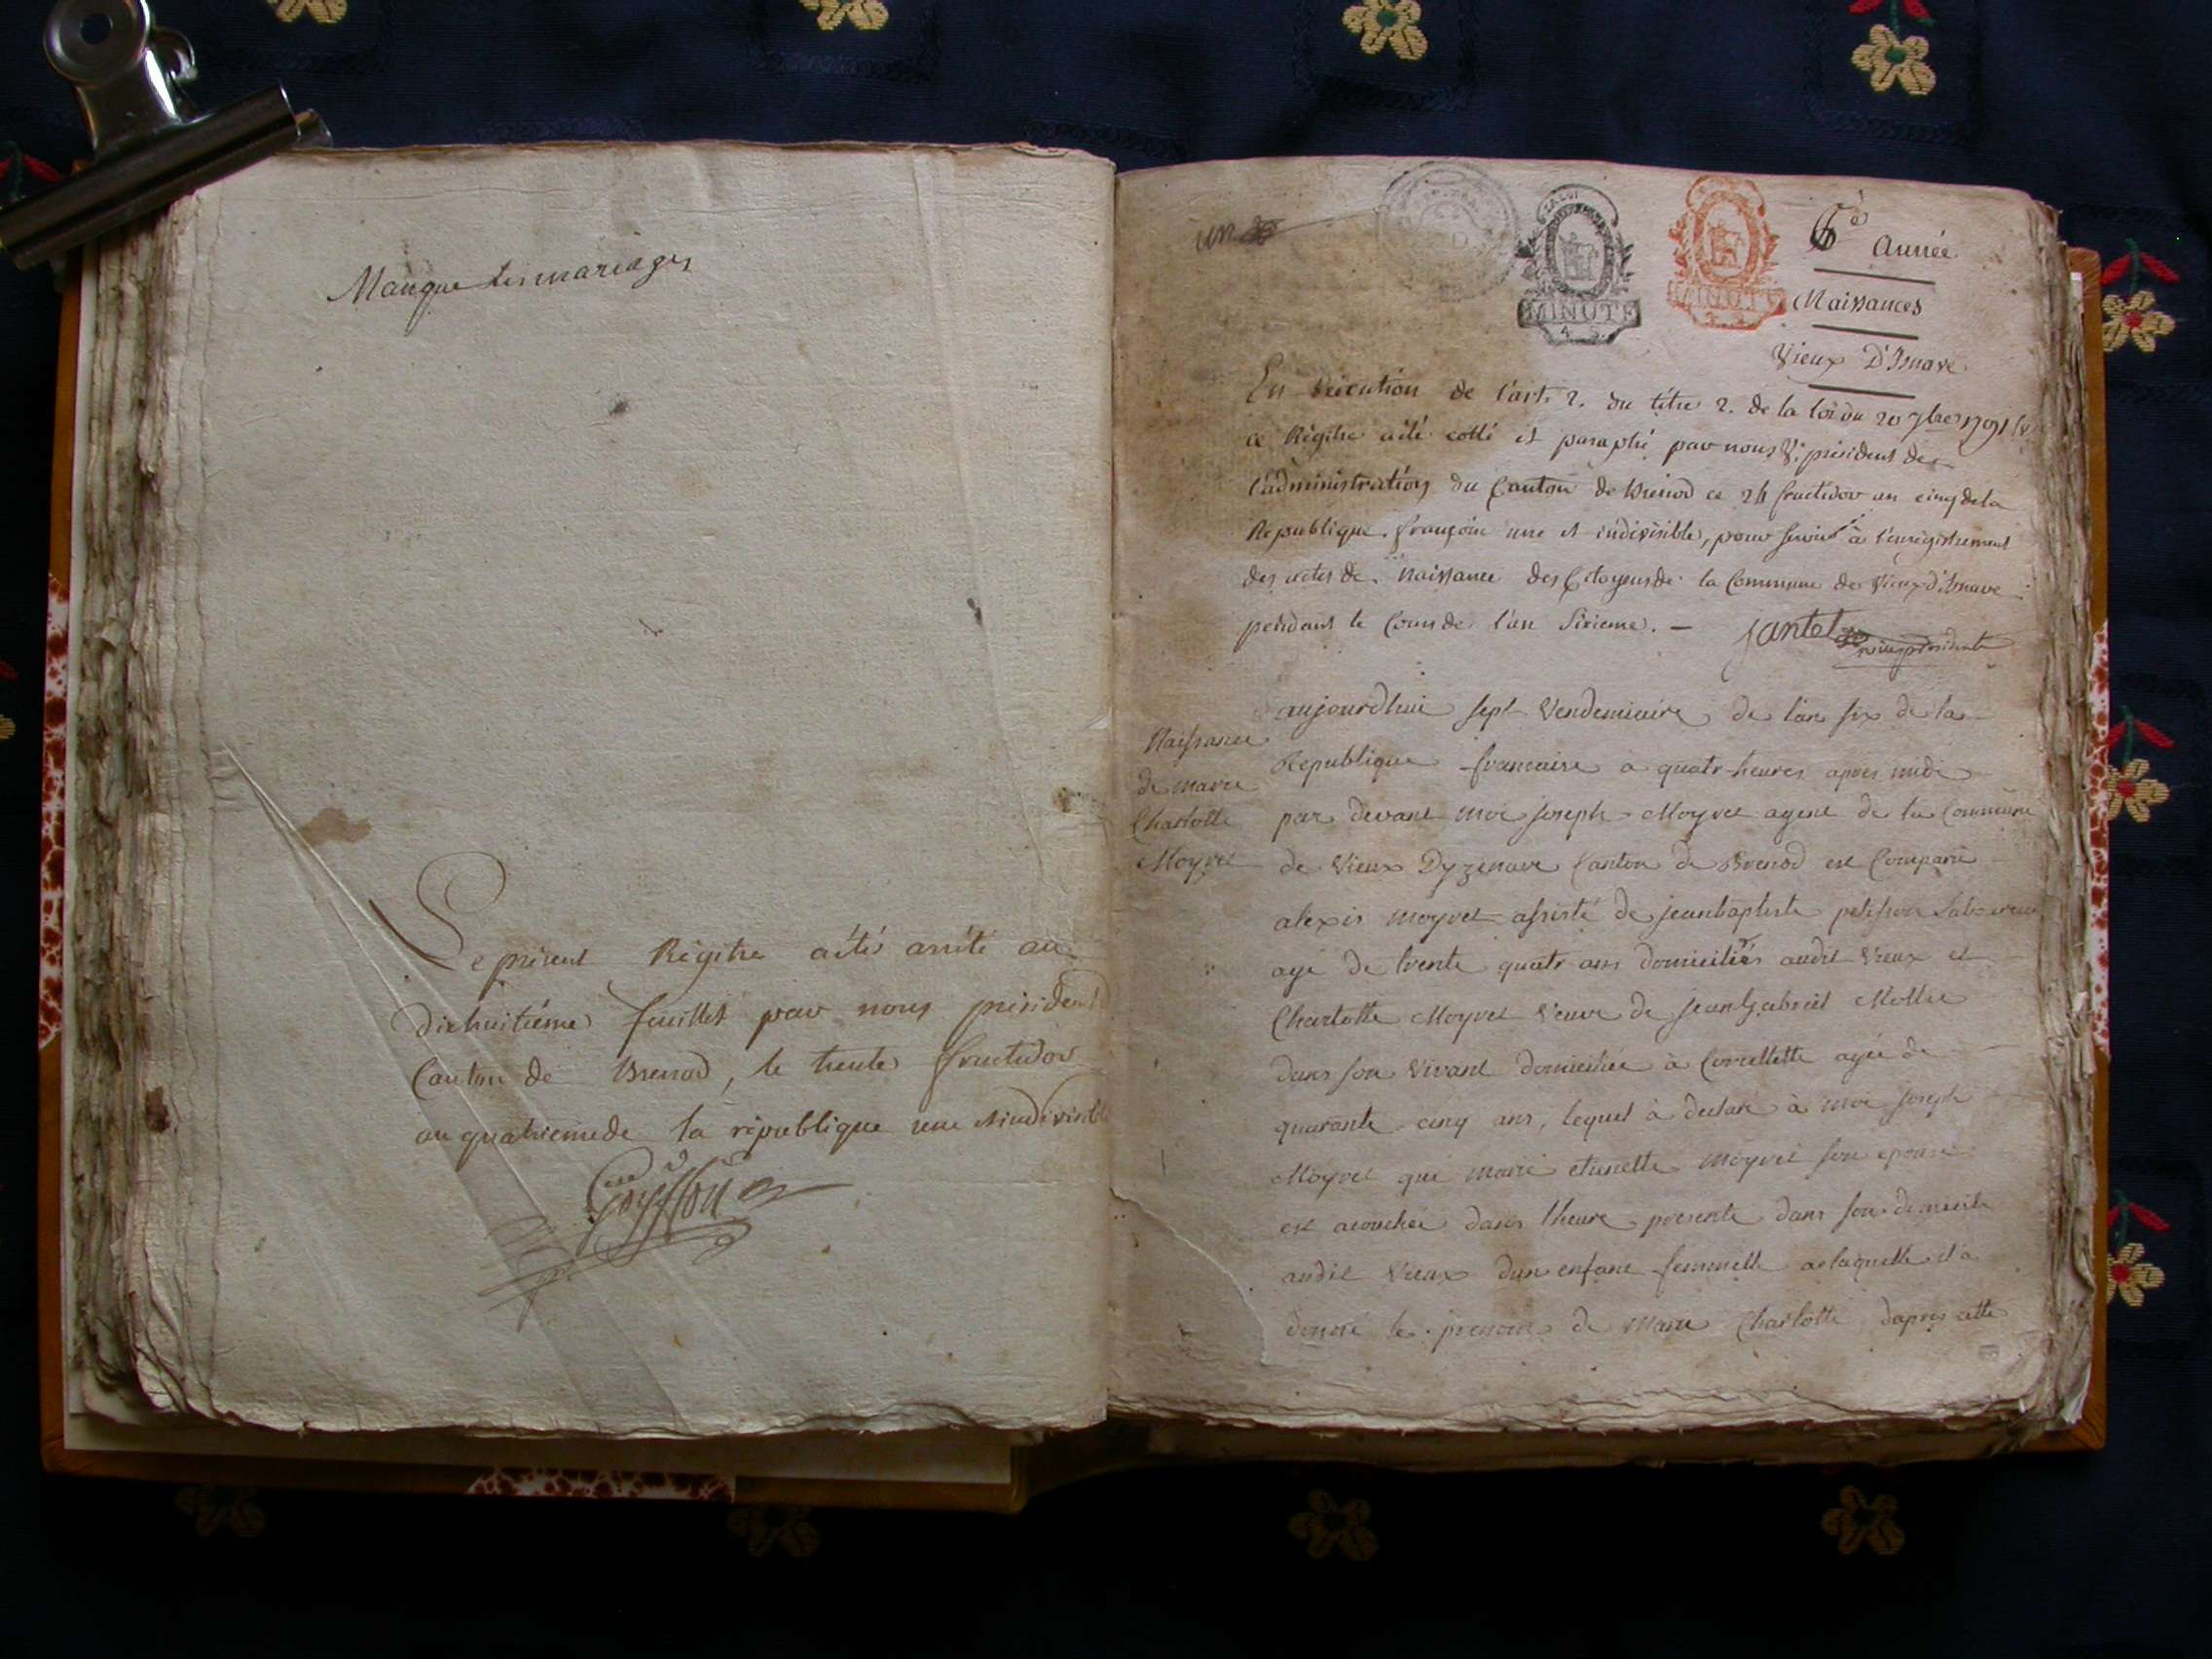 Manque les mariages
Le présent Régitre a été arrêté au
dixhuitiéme feuillet par nous président
Canton de Brenod, le trente fructidor
an quatrieme de la république une et indivisible
un
MINUTE
MINUTE
6e Année
Naissances
Vieux D'Isnave
En Execution de l'art. 2. du titre 2. de la loi du 20 7bre 1791
ce Régitre a été cotté et paraphé par nous V. président de
l'administration du Canton de Brenod ce 24 fructidor an cinq de la
Republique françoise une et indivisible, pour servir à l'enregistrement
des actes de Naissance des Citoyens de la Commune de Vieux d'Isnave
pendant le Cours de l'an Sixieme. —
Jantet
vice president
Naissance
de marie
Charlotte
Moyret
aujourdhui sept Vendemiaire de l'an six de la
Republique francaise a quatr heures apres midi
par devant moi joseph Moyret agent de la Commune
de Vieux Dyzenave Canton de Brenod est Comparu
alexis moyret assisté de jeanbaptiste
agé de trente quatr ans domiciliés audit Vieux et
Charlotte Moyret Veuve de jean Gabriel
dans son Vivant domiciliée à Corcellette agée de
quarante cinq ans, lequel à declaré à moi joseph
Moyret que marie etiennette moyret son epouse
est acouchée dans lheure presente dans son domicile
audit Vieux dun enfant femmelle a laquelle il a
donné le prenom de Marie Charlotte dapres cette